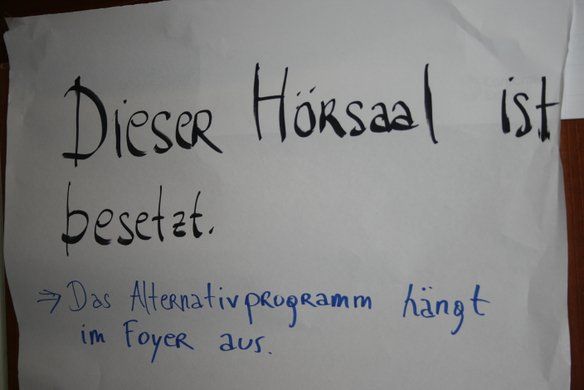 Dieser Hörsaal ist
besetzt.
⇒ Das Alternativprogramm hängt
im Foyer aus.